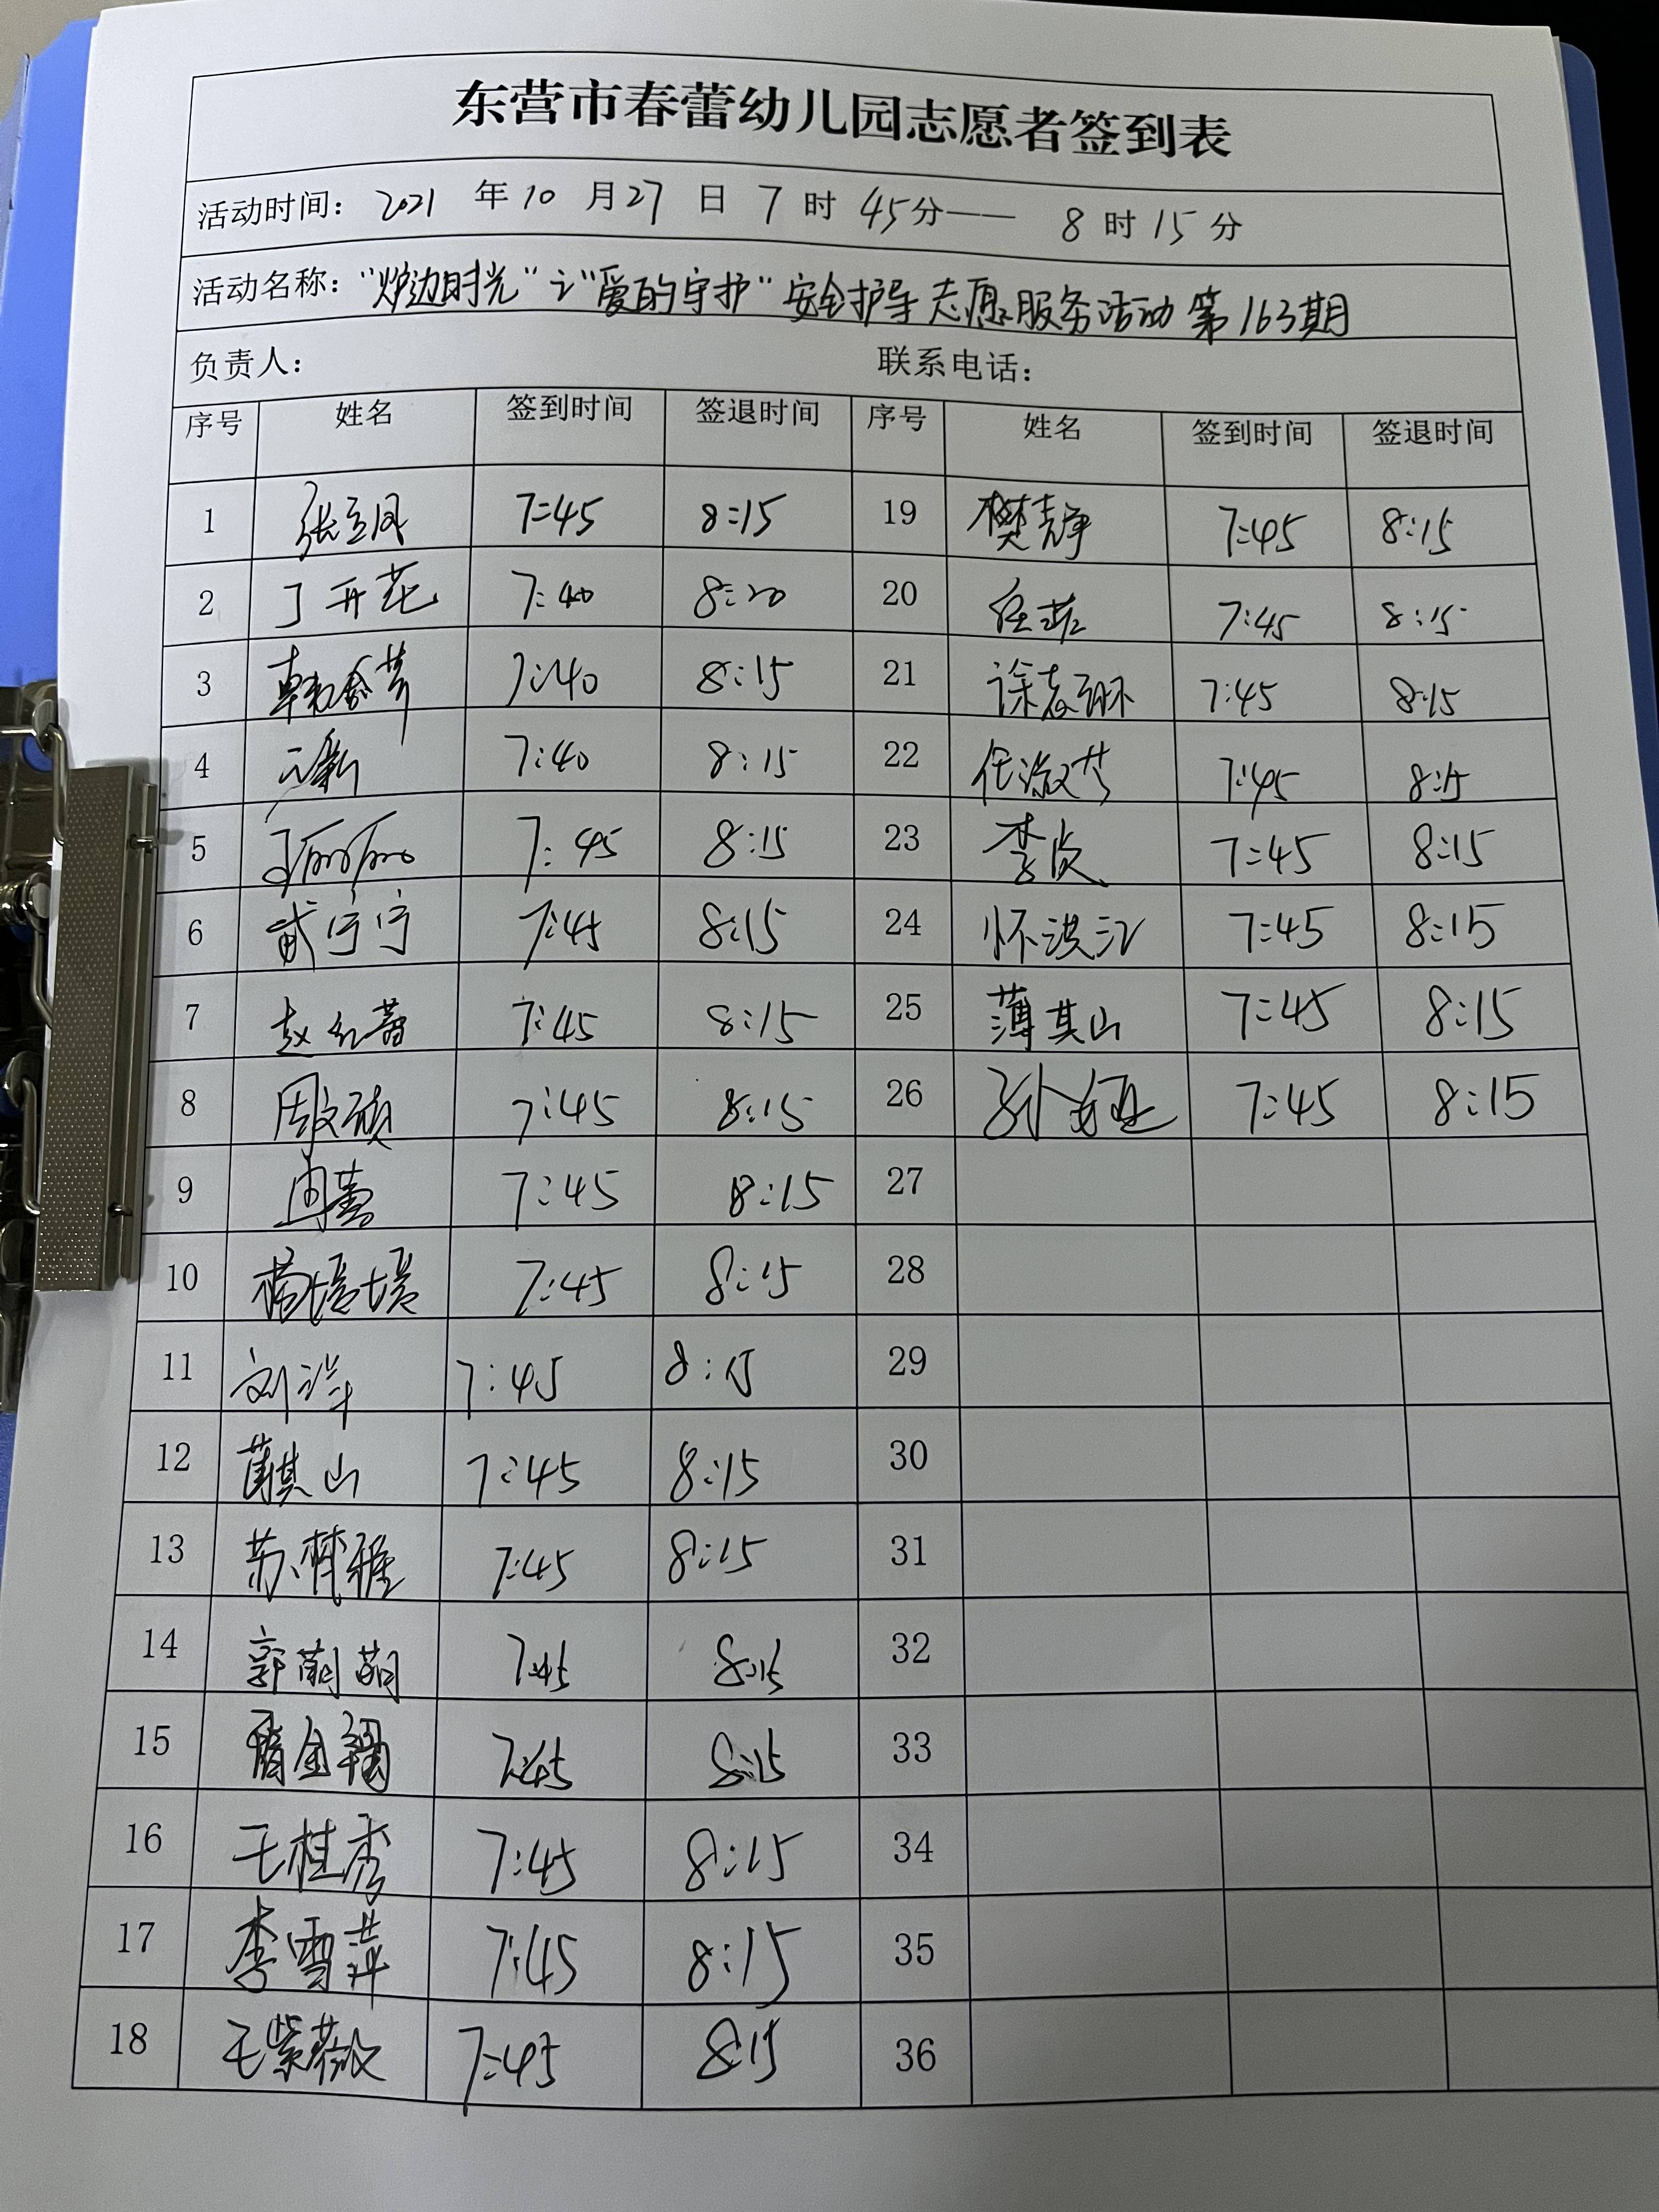 东营市春蕾幼儿园志愿者签到表
活动时间：2021 年 10 月 27 日 7 时 45分—— 8 时 15 分
活动名称：“炉边时光”之“爱的守护”安全护导志愿服务活动 第163期
负责人： 联系电话：
序号 姓名 签到时间 签退时间 序号 姓名 签到时间 签退时间
1 张立凤 7:45 8:15 19 樊志静 7:45 8:15
2 丁开花 7:40 8:20 20 任菲 7:45 8:15
3 韩金芳 7:40 8:15 21 徐志丽 7:45 8:15
4 7:40 8:15 22 任淑芳 7:45 8:15
5 丽丽 7:45 8:15 23 李俊 7:45 8:15
6 武宁宁 7:45 8:15 24 怀洪江 7:45 8:15
7 赵红蕾 7:45 8:15 25 薄其山 7:45 8:15
8 周文硕 7:45 8:15 26 孙娅 7:45 8:15
9 冉蕾 7:45 8:15 27
10 杨媛媛 7:45 8:15 28
11 刘洋 7:45 8:15 29
12 其山 7:45 8:15 30
13 苏梦雅 7:45 8:15 31
14 郭萌萌 7:45 8:15 32
15 金 7:45 8:15 33
16 王桂秀 7:45 8:15 34
17 李雪萍 7:45 8:15 35
18 王紫薇 7:45 8:15 36